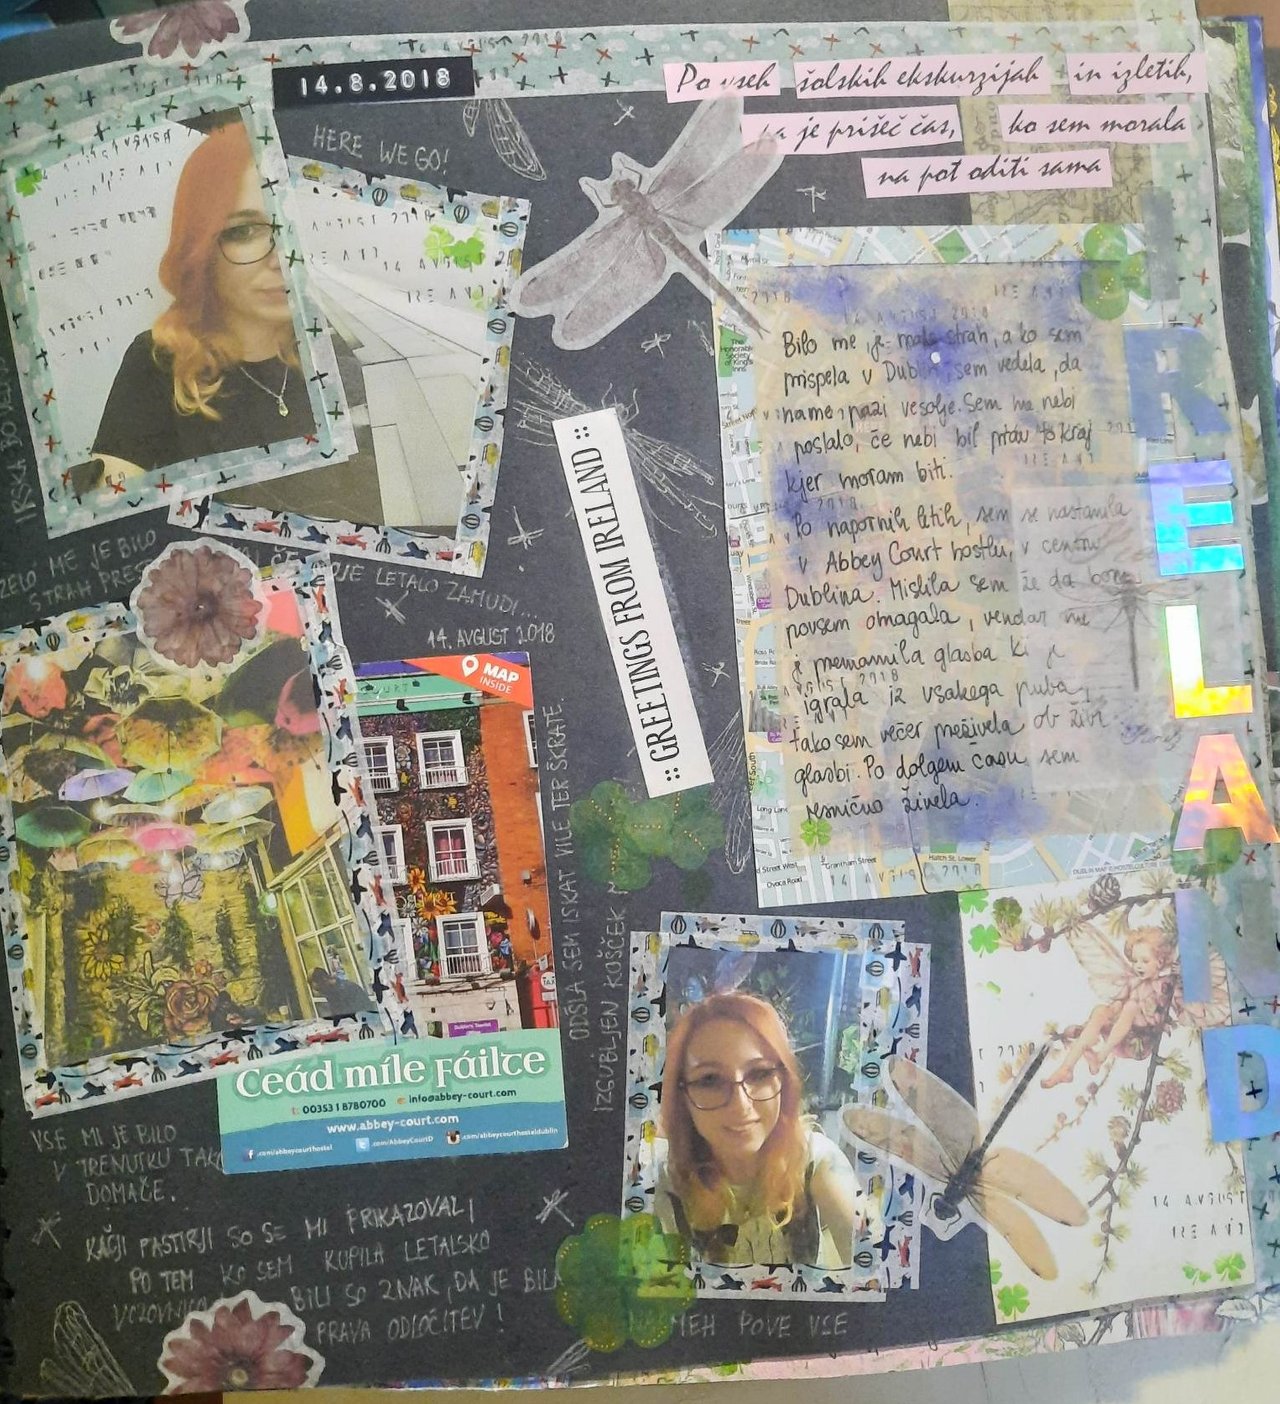 14.8.2018
Po vseh šolskih ekskurzijah in izletih,
pa je prišeč čas, ko sem morala
na pot oditi sama
HERE WE GO!
14 AVGUST 2018
Bilo me je malo strah, a ko sem
prispela v Dublin, sem vedela, da
name pazi vesolje. Sem me nebi
poslalo, če nebi bil prav to kraj
kjer moram biti.
Po napornih letih, sem se nastanila
v Abbey Court hostlu, v centru
Dublina. Mislila sem že da bom
povsem omagala, vendar me
je premamila glasba ki je
igrala iz vsakega puba,
tako sem večer preživela ob živi
glasbi. Po dolgem času sem
resnično živela.
IRELAND
:: GREETINGS FROM IRELAND ::
IRSKA BO
ZELO ME JE BILO
STRAH
LETALO ZAMUDI....
14. AVGUST 2018
MAP
INSIDE
COURT
ODŠLA SEM ISKAT VILE TER ŠKRATE.
IZGUBLJEN KOŠČEK
Ceád míle Fáilte
t: 0035318780700 e: info@abbey-court.com
www.abbey-court.com
.com/abbeycourthostel .com/AbbeyCourtD .com/abbeycourthosteldublin
VSE MI JE BILO
V TRENUTKU TAKO
DOMAČE.
KAČJI PASTIRJI SO SE MI PRIKAZOVALI
PO TEM KO SEM KUPILA LETALSKO
VOZOVNICO BILI SO ZNAK, DA JE BILA
PRAVA ODLOČITEV!
NASMEH POVE VSE
The Honorable Society of King's Inns
Long Lane
Grantham Street
Hatch St. Lower
Ovoca Road
14 AVGUST 2018